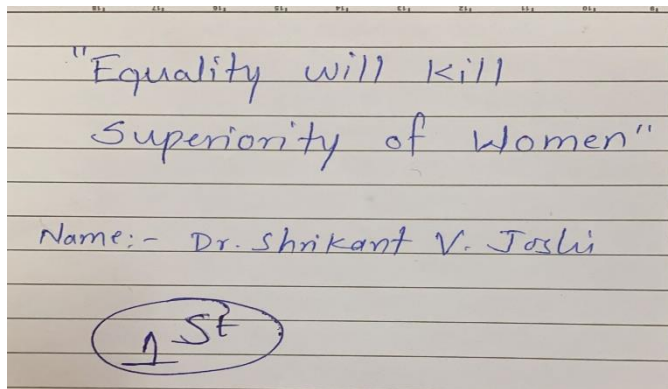 "Equality will kill
Superiority of Women"
Name:- Dr. Shrikant V. Joshi
1st